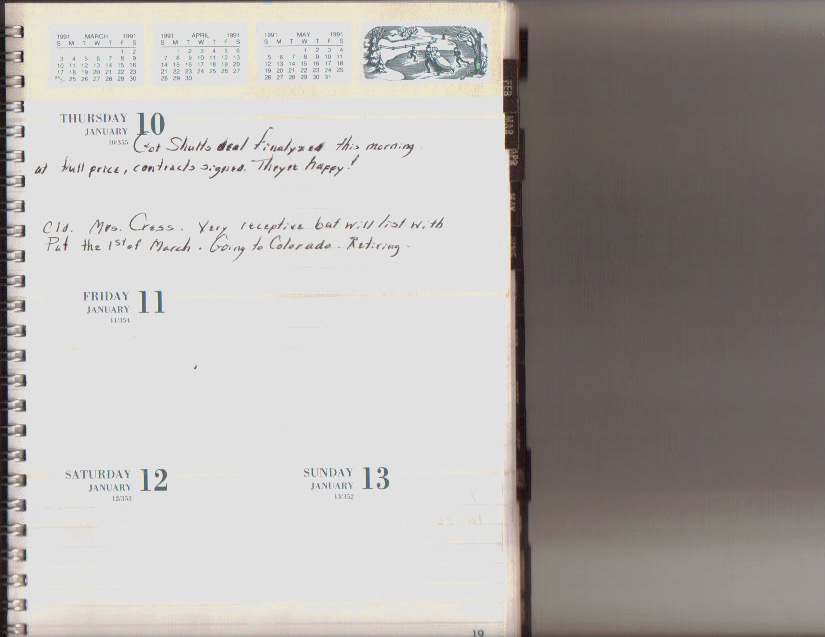 1991 MARCH 1991
S M T W T F S
1 2
3 4 5 6 7 8 9
10 11 12 13 14 15 16
17 18 19 20 21 22 23
25 26 27 28 29 30
1991 APRIL 1991
S M T W T F S
1 2 3 4 5 6
7 8 9 10 11 12 13
14 15 16 17 18 19 20
21 22 23 24 25 26 27
28 29 30
1991 MAY 1991
S M T W T F S
1 2 3 4
5 6 7 8 9 10 11
12 13 14 15 16 17 18
19 20 21 22 23 24 25
26 27 28 29 30 31
FEB
MAR
APR
MAY
THURSDAY 10
JANUARY
10/355
Got Shutts deal finalyzed this morning.
at full price, contracts signed. They're happy!
Cld. Mrs. Cress. Very receptive but will list with
Pat the 1st of March. Going to Colorado - Retiring -
FRIDAY 11
JANUARY
11/354
SATURDAY 12
JANUARY
12/353
SUNDAY 13
JANUARY
13/352
19